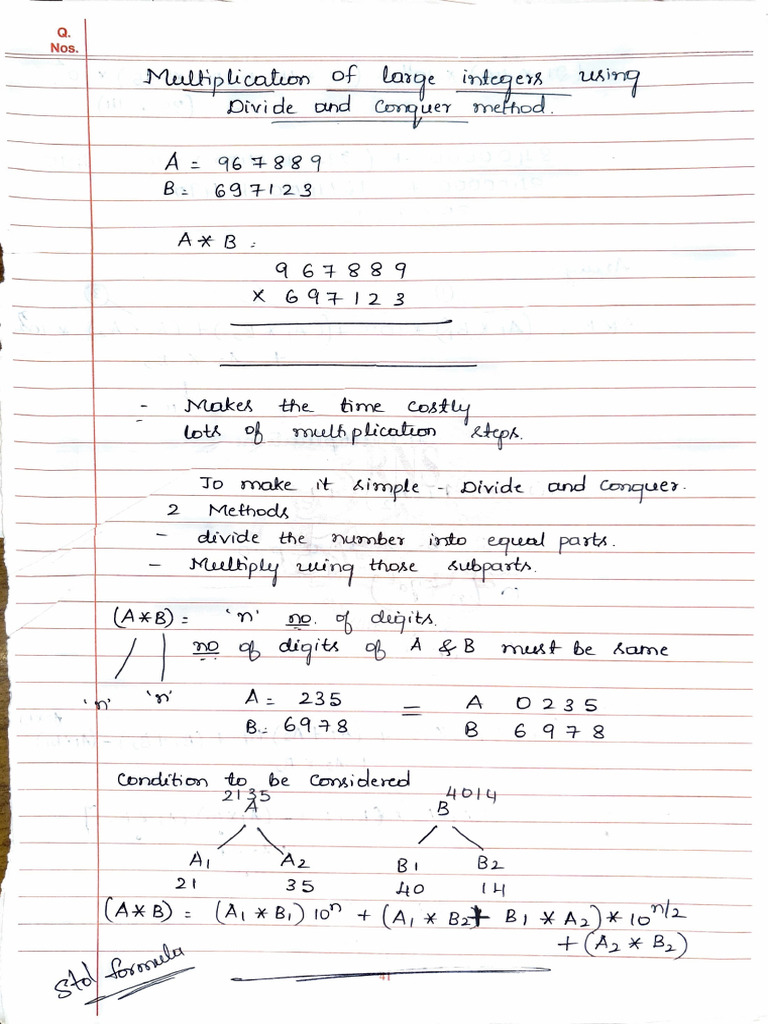 Q.
Nos.
Multiplication of large integers using
Divide and Conquer method.
A = 967889
B = 697123
A * B =
967889
× 697123
- Makes the time costly
- lots of multiplication steps.
To make it simple - Divide and Conquer.
2 Methods
- divide the number into equal parts.
- Multiply using those subparts.
(A * B) = 'n' no. of digits.
no of digits of A & B must be same
'n' 'n'
A = 235 = A 0235
B = 6978 B 6978
Condition to be considered
2135 4014
A B
A1 A2 B1 B2
21 35 40 14
(A * B) = (A1 * B1) 10^n + (A1 * B2 + B1 * A2) * 10^n/2
+ (A2 * B2)
Std formula
41